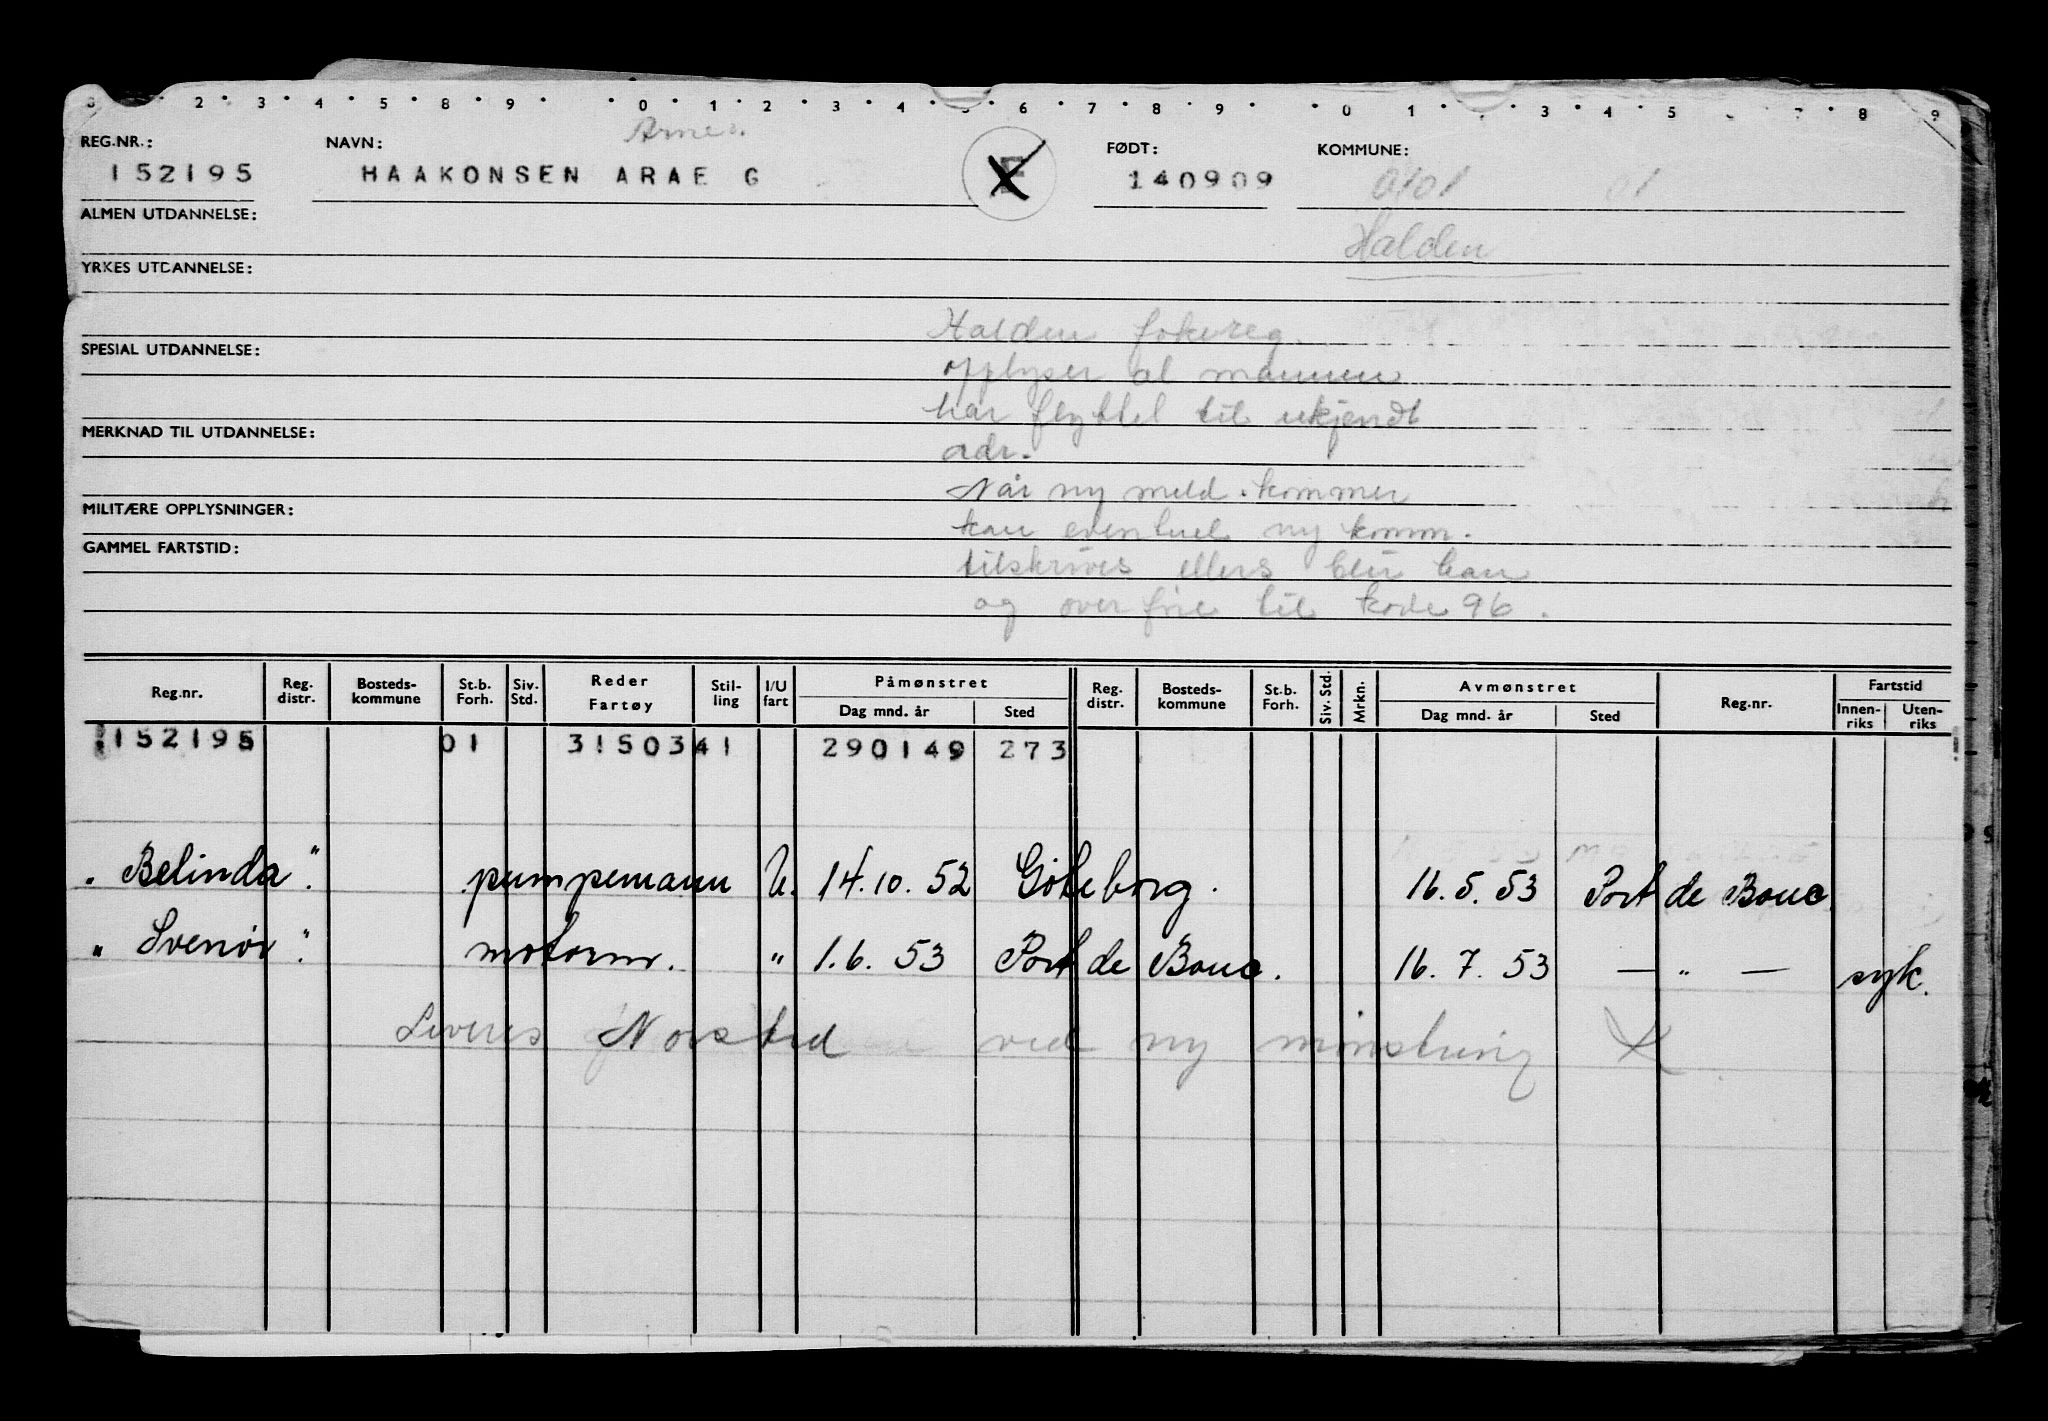 2 3 4 5 8 9 0 1 2 3 4 5 6 7 8 9 0 1 3 4 5 7 8 9
Arne
REG.NR.: NAVN: FØDT: KOMMUNE:
152195 HAAKONSEN ARAE G E 140909 0101 01
ALMEN UTDANNELSE:
Halden
YRKES UTDANNELSE:
Halden fokereg.
SPESIAL UTDANNELSE:
opplyser at mannen
har flyttet til ukjendt
MERKNAD TIL UTDANNELSE:
adr.
Når ny meld. kommer
MILITÆRE OPPLYSNINGER:
kan eventuel ny komm.
GAMMEL FARTSTID:
tilskrives ellers blir han
og overføre til kode 96.
Reg.nr. Reg. distr. Bosteds-kommune St.b. Forh. Siv. Std. Reder Fartøy Stil-ling I/U fart Påmønstret Dag mnd. år Sted Reg. distr. Bosteds-kommune St.b. Forh. Siv. Std. Mrkn. Avmønstret Dag mnd. år Sted Reg.nr. Fartstid Innen-riks Uten-riks
152195 01 3150341 290149 273
"Belinda". pumpemann U. 14.10.52 Göteborg. 16.5.53 Port de Bouc
"Svenör". motorm. " 1.6.53 Port de Bouc. 16.7.53 — " — syk.
Leveres Norstad ved ny mønstring X